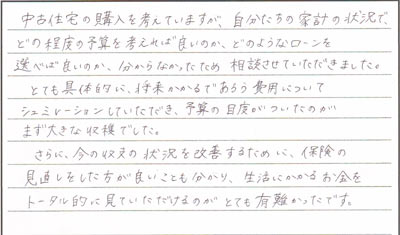 中古住宅の購入を考えていますが、自分たちの家計の状況で、
どの程度の予算を考えれば良いのか、どのようなローンを
選べば良いのか、分からなかったため 相談させていただきました。
とても具体的に、将来かかるであろう費用について
シュミレーションしていただき、予算の目度がついたのが
まず大きな収穫でした。
さらに、今の収支の状況を改善するために、保険の
見直しをした方が良いことも分かり、生活にかかるお金を
トータル的に見ていただけるのがとても有難かったです。